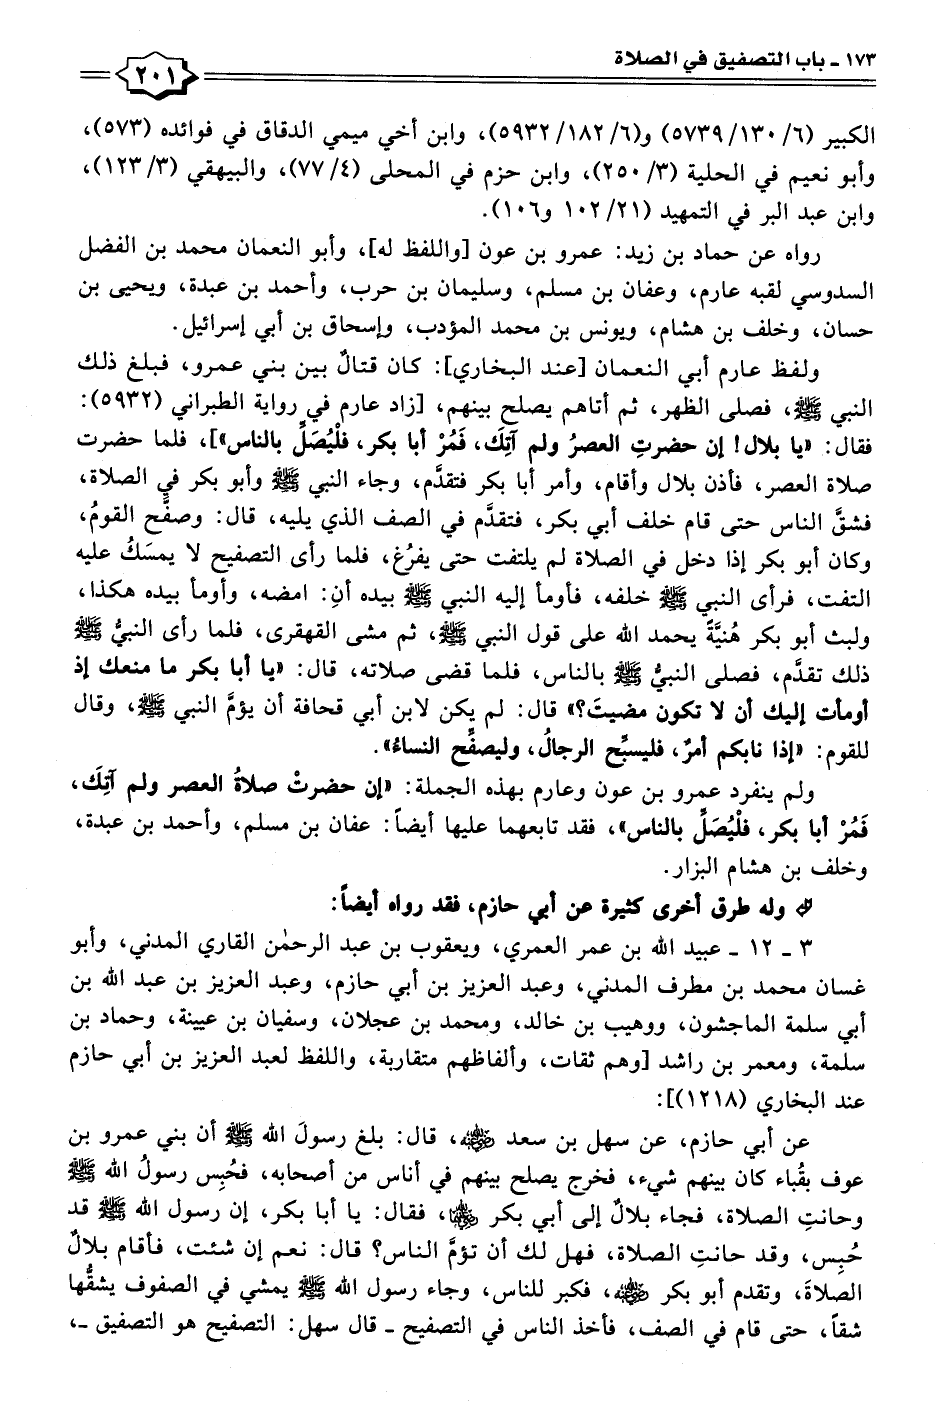 ١٧٣ - باب التصفيق في الصلاة
٢٠١
الكبير (٦/ ١٣٠/ ٥٧٣٩) و(٦/ ١٨٢/ ٥٩٣٢)، وابن أخي ميمي الدقاق في فوائده (٥٧٣)،
وأبو نعيم في الحلية (٣/ ٢٥٠)، وابن حزم في المحلى (٤/ ٧٧)، والبيهقي (٣/ ١٢٣)،
وابن عبد البر في التمهيد (٢١/ ١٠٢ و١٠٦).
رواه عن حماد بن زيد: عمرو بن عون [واللفظ له]، وأبو النعمان محمد بن الفضل
السدوسي لقبه عارم، وعفان بن مسلم، وسليمان بن حرب، وأحمد بن عبدة، ويحيى بن
حسان، وخلف بن هشام، ويونس بن محمد المؤدب، وإسحاق بن أبي إسرائيل.
ولفظ عارم أبي النعمان [عند البخاري]: كان قتالٌ بين بني عمرو، فبلغ ذلك
النبي ﷺ، فصلى الظهر، ثم أتاهم يصلح بينهم، [زاد عارم في رواية الطبراني (٥٩٣٢):
فقال: «يا بلال! إن حضرتِ العصرُ ولم آتِكَ، فَمُرْ أبا بكر، فلْيُصَلِّ بالناس»]، فلما حضرت
صلاة العصر، فأذن بلال وأقام، وأمر أبا بكر فتقدَّم، وجاء النبي ﷺ وأبو بكر في الصلاة،
فشقَّ الناس حتى قام خلف أبي بكر، فتقدَّم في الصف الذي يليه، قال: وصفَّح القومُ،
وكان أبو بكر إذا دخل في الصلاة لم يلتفت حتى يفرُغ، فلما رأى التصفيح لا يمسَكُ عليه
التفت، فرأى النبي ﷺ خلفه، فأومأ إليه النبي ﷺ بيده أنِ: امضه، وأومأ بيده هكذا،
ولبث أبو بكر هُنيَّةً يحمد الله على قول النبي ﷺ، ثم مشى القهقرى، فلما رأى النبيُّ ﷺ
ذلك تقدَّم، فصلى النبيُّ ﷺ بالناس، فلما قضى صلاته، قال: «يا أبا بكر ما منعك إذ
أومأت إليك أن لا تكون مضيتَ؟» قال: لم يكن لابن أبي قحافة أن يؤمَّ النبي ﷺ، وقال
للقوم: «إذا نابكم أمرٌ، فليسبِّح الرجالُ، وليصفِّح النساءُ».
ولم ينفرد عمرو بن عون وعارم بهذه الجملة: «إن حضرتْ صلاةُ العصر ولم آتِكَ،
فَمُرْ أبا بكر، فلْيُصَلِّ بالناس»، فقد تابعهما عليها أيضاً: عفان بن مسلم، وأحمد بن عبدة،
وخلف بن هشام البزار.
وله طرق أخرى كثيرة عن أبي حازم، فقد رواه أيضاً:
٣ - ١٢ - عبيد الله بن عمر العمري، ويعقوب بن عبد الرحمٰن القاري المدني، وأبو
غسان محمد بن مطرف المدني، وعبد العزيز بن أبي حازم، وعبد العزيز بن عبد الله بن
أبي سلمة الماجشون، ووهيب بن خالد، ومحمد بن عجلان، وسفيان بن عيينة، وحماد بن
سلمة، ومعمر بن راشد [وهم ثقات، وألفاظهم متقاربة، واللفظ لعبد العزيز بن أبي حازم
عند البخاري (١٢١٨)]:
عن أبي حازم، عن سهل بن سعد رضي الله عنه، قال: بلغ رسولَ الله ﷺ أن بني عمرو بن
عوف بقُباء كان بينهم شيء، فخرج يصلح بينهم في أناس من أصحابه، فحُبِس رسولُ الله ﷺ
وحانتِ الصلاة، فجاء بلالٌ إلى أبي بكر رضي الله عنهما، فقال: يا أبا بكر، إن رسول الله ﷺ قد
حُبِس، وقد حانتِ الصلاة، فهل لك أن تؤمَّ الناس؟ قال: نعم إن شئت، فأقام بلالٌ
الصلاةَ، وتقدم أبو بكر رضي الله عنه، فكبر للناس، وجاء رسول الله ﷺ يمشي في الصفوف يشقُّها
شقاً، حتى قام في الصف، فأخذ الناس في التصفيح - قال سهل: التصفيح هو التصفيق -،